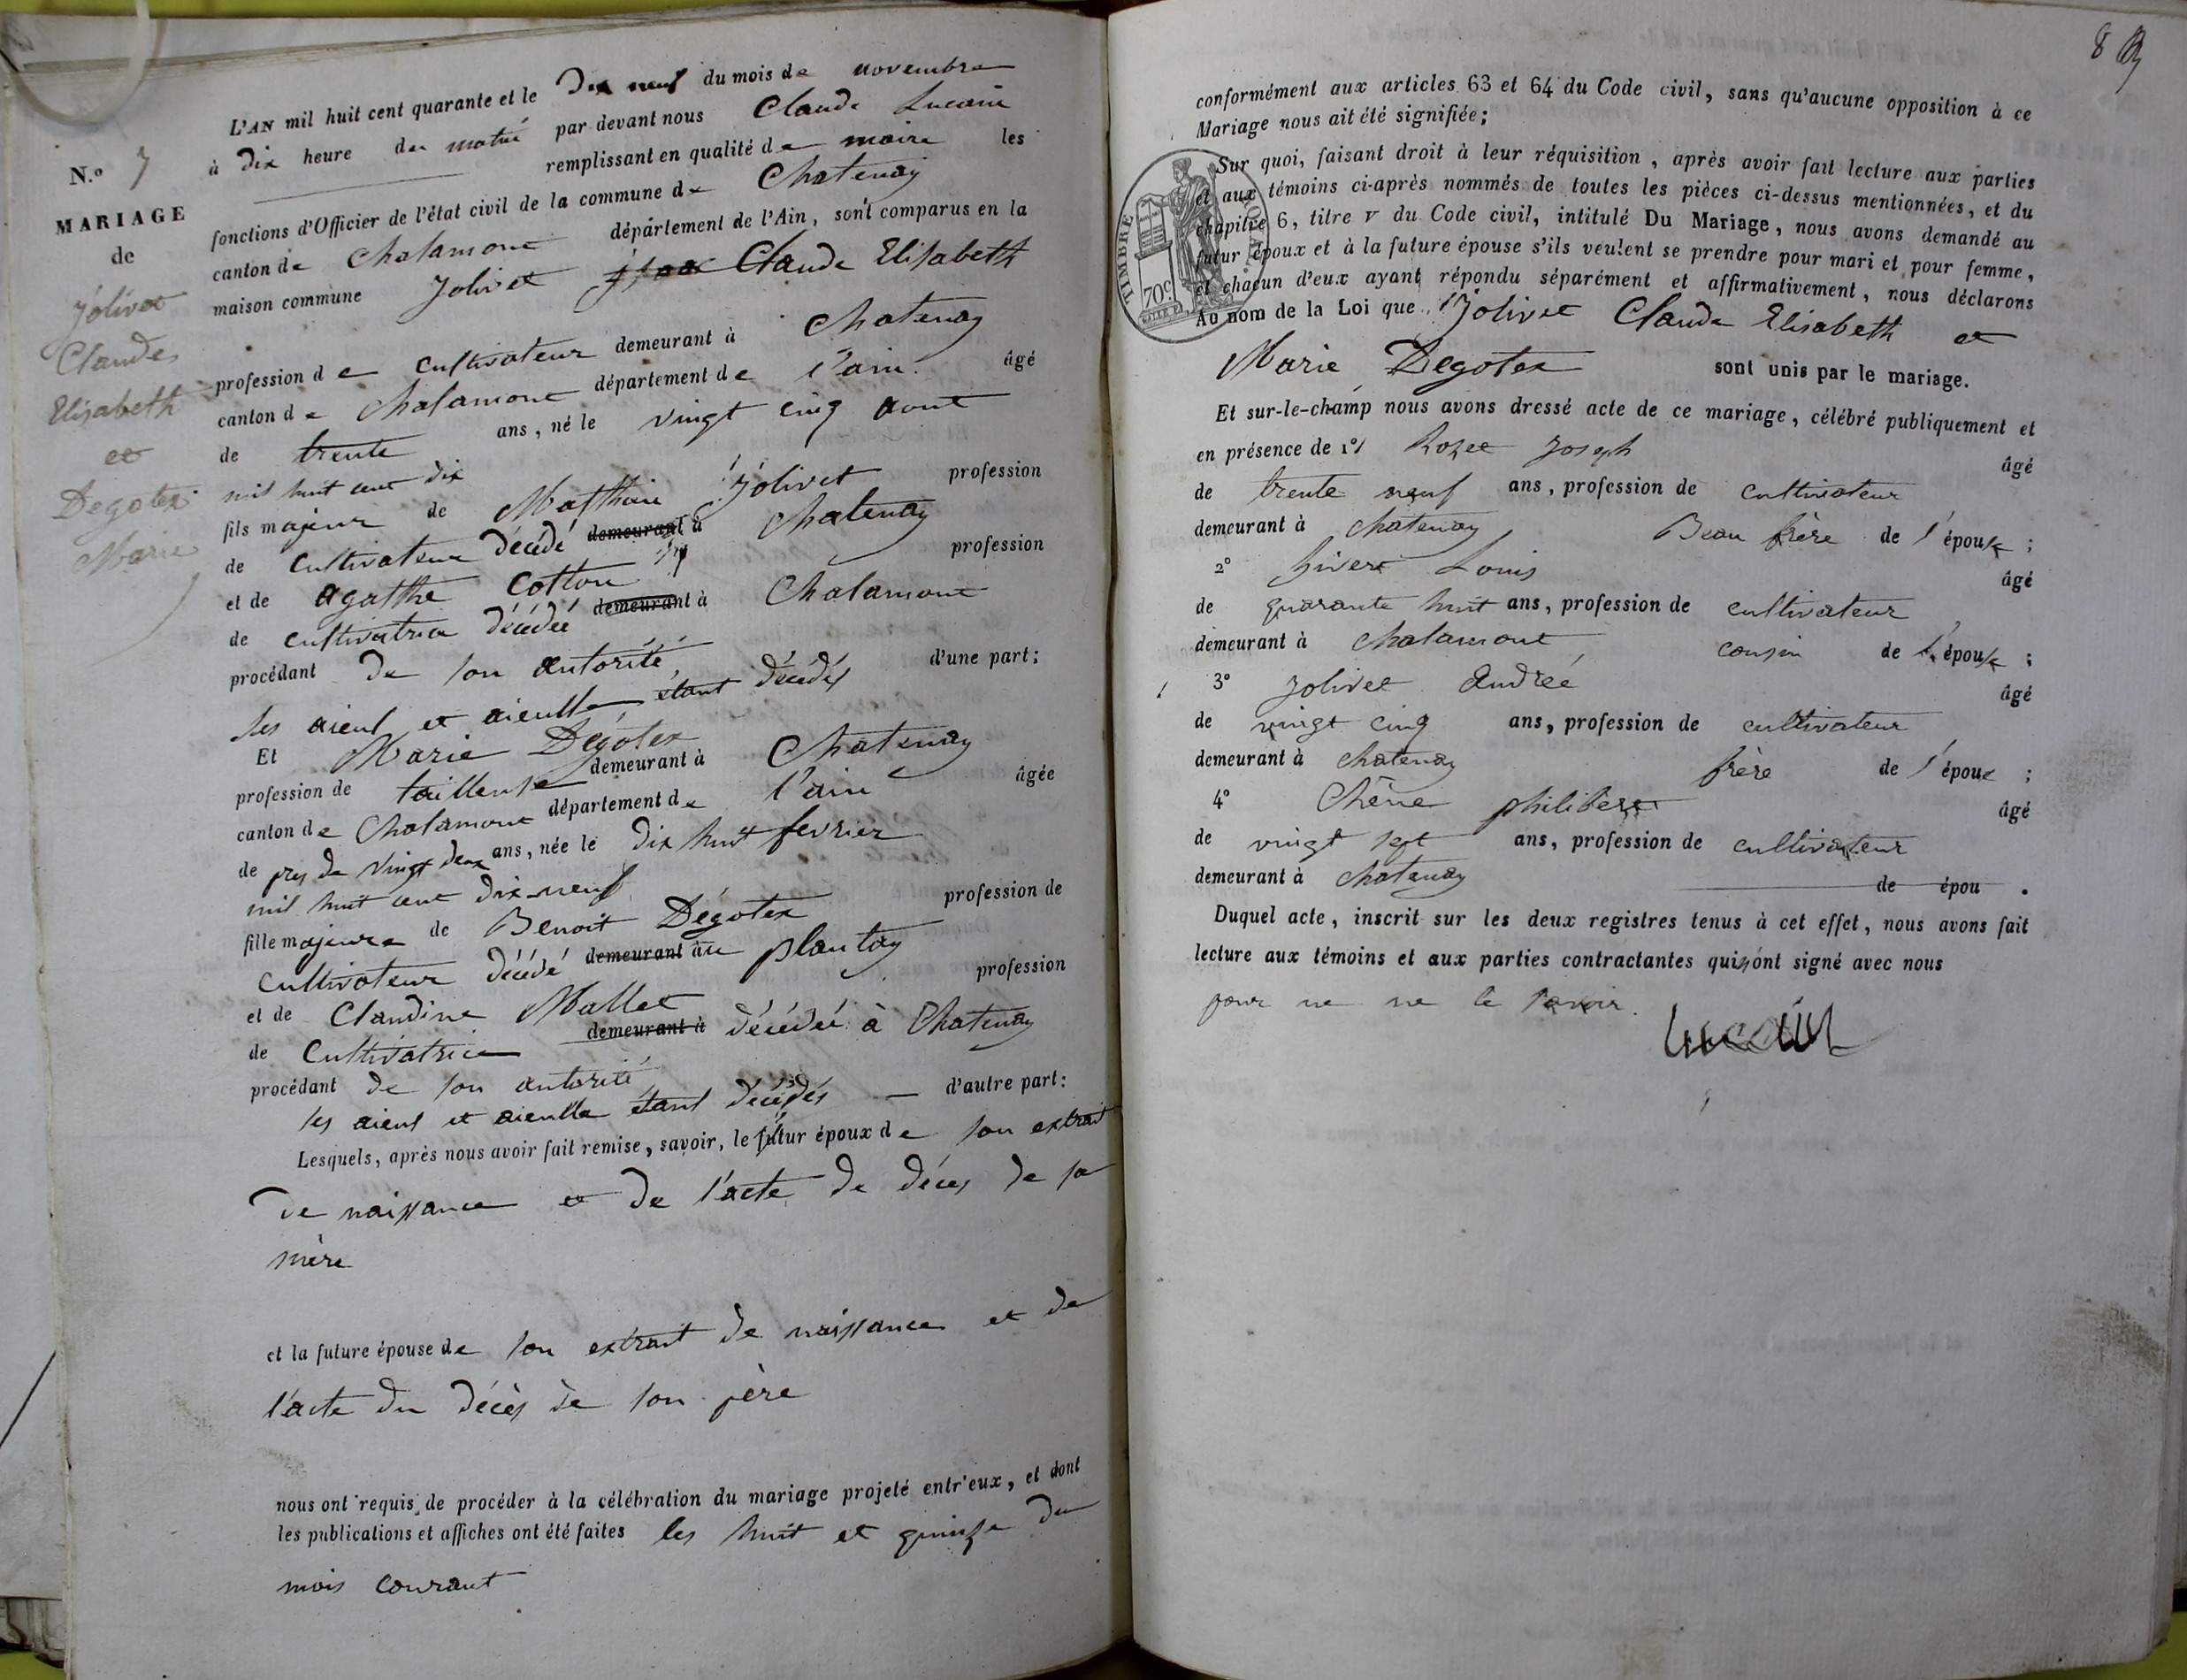 N.º 7
MARIAGE
de
Jolivet
Claude
Elisabeth
et
Degotex
Marie
L'AN mil huit cent quarante et le Dix neuf du mois de novembre
à Dix heure du matin par devant nous Claude Lucain
remplissant en qualité de maire les
fonctions d'Officier de l'état civil de la commune de Chatenay
canton de Chalamont département de l'Ain, sont comparus en la
maison commune Jolivet Claude Elisabeth
profession de cultivateur demeurant à Chatenay
canton de Chalamont département de l'ain. âgé
de trente ans, né le vingt cinq aout
mil huit cent dix
fils majeur de Matthieu Jolivet profession
de cultivateur décédé demeurant à Chatenay
et de agatthe Cotton profession
de cultivatrice décédée demeurant à Chalamont
procédant de son autorité, d'une part;
ses aieul et aieulle étant décédés
Et Marie Degotex
profession de tailleuse demeurant à Chatenay
canton de Chalamont département de l'ain âgée
de pres de vingt deux ans, née le dix huit fevrier
mil huit cent dix-neuf
fille majeure de Benoit Dégotex profession de
cultivateur décédé demeurant au plantay
et de Claudine Mallet profession
de Cultivatrice demeurant à décédée à Chatenay
procédant de son autorité d'autre part:
ses aieul et aieulle étant décédés
Lesquels, après nous avoir fait remise, savoir, le futur époux de son extrait
de naissance et de l'acte de décès de sa
mère
et la future épouse de son extrait de naissance et de
l'acte du décès de son père
nous ont requis de procéder à la célébration du mariage projeté entr'eux, et dont
les publications et affiches ont été faites les huit et quinze du
mois courant
8
conformément aux articles 63 et 64 du Code civil, sans qu'aucune opposition à ce
Mariage nous ait été signifiée;
TIMBRE
70c
Sur quoi, faisant droit à leur réquisition, après avoir fait lecture aux parties
et aux témoins ci-après nommés de toutes les pièces ci-dessus mentionnées, et du
chapitre 6, titre v du Code civil, intitulé Du Mariage, nous avons demandé au
futur époux et à la future épouse s'ils veulent se prendre pour mari et pour femme,
et chacun d'eux ayant répondu séparément et affirmativement, nous déclarons
Au nom de la Loi que Jolivet Claude Elisabeth et
Marie Degotex sont unis par le mariage.
Et sur-le-champ nous avons dressé acte de ce mariage, célébré publiquement et
en présence de 1º Rozet Joseph âgé
de trente neuf ans, profession de cultivateur
demeurant à Chatenay Beau frère de l'épouse;
2º hivert Louis âgé
de quarante huit ans, profession de cultivateur
demeurant à Chalamont cousin de l'épouse;
3º Jolivet André âgé
de vingt cinq ans, profession de cultivateur
demeurant à Chatenay frère de l'époux;
4º Chêne philibert âgé
de vingt sept ans, profession de cultivateur
demeurant à Chatenay de épou.
Duquel acte, inscrit sur les deux registres tenus à cet effet, nous avons fait
lecture aux témoins et aux parties contractantes qui n'ont signé avec nous
pour ne le savoir.
Lucain